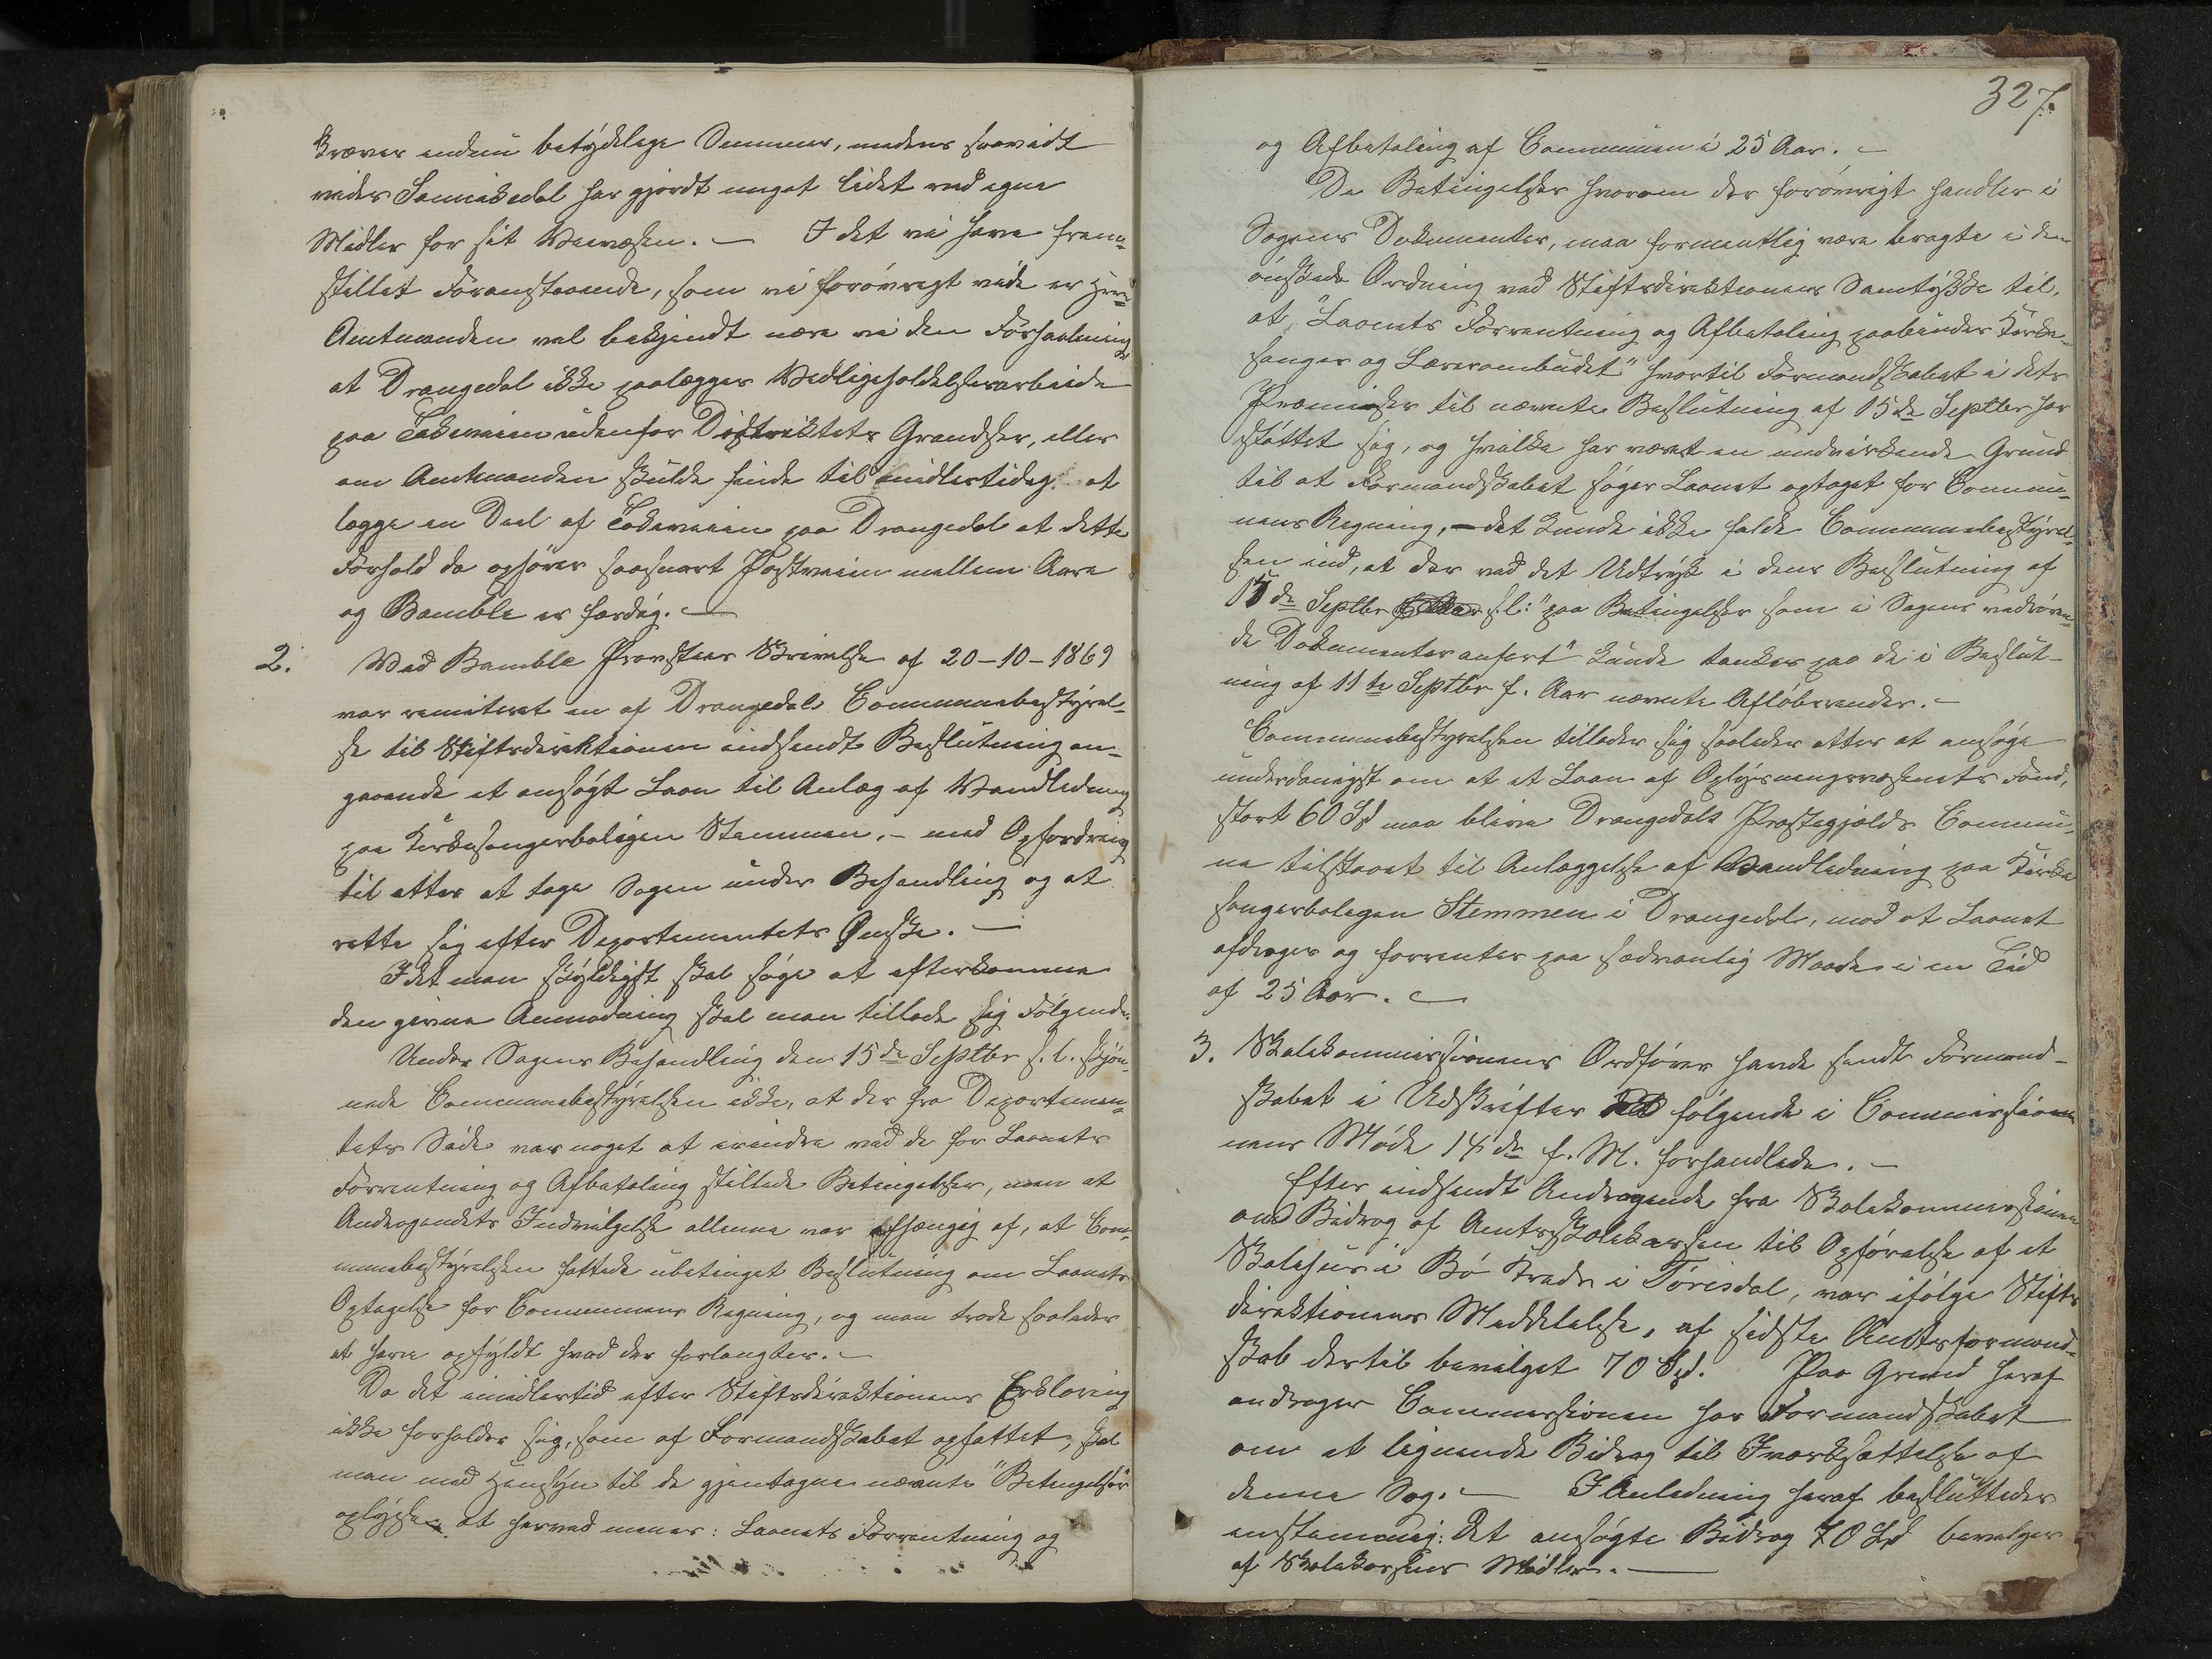 kræver endnu betydelige Summer, medens saavidt
vides Sannikedal har gjordt meget lidet ved egne
Midler for sit Veivæsen. — I det vi have frem-
stillet Foranstaaende, som vi forøvrigt vide er Hr
Amtmanden vel bekjendt nære vi den Forhaabning
at Drangedal ikke paalægges Vedligeholdelsesarbeide
paa Tokeveien udenfor Distriktets Grændser, eller
om Amtmanden skulde finde til midlertidig at
lægge en Deel af Tokeveien paa Drangedal at dette
Forhold da ophører saasnart Postveien mellem Aare
og Bamble er færdig. —
2. Med Bamble Provsties Skrivelse af 20-10-1869
var remiteret en af Drangedals Communebestyrel-
se til Stiftsdirektionen indsendt Beslutning an-
gaaende et ansøgt Laan til Anlæg af Vandledning
paa Kirkesangerboligen Stemmen. - med Opfordring
til atter at tage Sagen under Behandling og at
rette sig efter Departementets Ønske. —
Idet man skyldigst skal søge at efterkomme
den givne Anmodning skal man tillade sig Følgende.
Under Sagens Behandling den 15de Septbr s. l. skjøn-
nede Communebestyrelsen ikke, at der fra Departemen-
tets Side var noget at erindre ved de for Laanets
Forrentning og Afbetaling stillede Betingelser, men at
Andragendets Indvilgelse allene var afhængig af, at Com-
munebestyrelsen fattede ubetinget Beslutning om Laanets
Optagelse for Communens Regning, og man trode saaledes
at have opfyldt hvad der forlangtes. —
Da det imidlertid efter Stiftsdirektionens Erklæring
ikke forholder sig, som af Formandskabet opfattet, skal
man med Hensyn til de gjentagne nævnte "Betingelser"
oplyse at herved menes: Laanets Forrentning og
327.
og Afbetaling af Communen i 25 Aar. —
De Betingelser hvorom der forøvrigt handles i
Sagens Dokumenter, maa formentlig være bragte i den
ønskede Ordning ved Stiftsdirektionens Samtykke til,
at "Laanets Forrentning og Afbetaling paabindes Kirke-
sanger og Lærerombudet" hvortil Formandskabet i dets
Præmisser til nævnte Beslutning af 15de Septbr har
støttet sig, og hvilke har været en medvirkende Grund
til at Formandskabet søger Laanet optaget for Commu-
nens Regning, - det kunde ikke falde Communebestyrel-
sen ind, at der ved det Udtryk i dens Beslutning af
15de Septbr s. l: "paa Betingelser som i Sagens vedrøren-
de Dokumenter anført" kunde tænkes paa de i Beslut-
ning af 11te Septbr f. Aar nævnte Afløbsrender. —
Communebestyrelsen tillader sig saaledes atter at ansøge
underdanigst om at et Laan af Oplysningsvæsenets Fond,
stort 60 Spd maa blive Drangedals Præstegjelds Commu-
ne tilstaaet til Anlæggelse af Vandledning paa Kirke
sangerboligen Stemmen i Drangedal, mod at Laanet
afdrages og forrentes paa sædvanlig Maade i en Tid
af 25 Aar. —
3. Skolekommissionens Ordfører havde sendt Formand-
skabet i Udskrifter følgende i Commissio-
nens Møde 14de f. M. forhandlede. —
Efter indsendt Andragende fra Skolekommissionen
om Bidrag af Amtsskolekassen til Opførelse af et
Skolehus i Bø Kreds i Tørisdal, var ifølge Stifts
direktionens Meddelelse, af sidste Amtsformand-
skab dertil bevilget 70 Spd. Paa Grund heraf
andrager Commissionen hos Formandskabet
om et lignende Bidrag til Iværksættelse af
denne Sag. — I Anledning heraf besluttedes
enstemmig: Det ansøgte Bidrag 70 Spd bevilges
af Skolekassens Midler. —